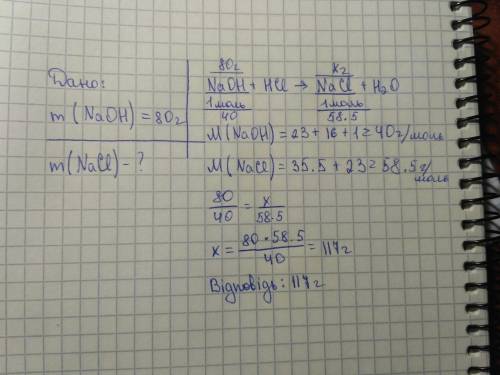 Дано:
m(NaOH) = 80г
m(NaCl) - ?
80г xг
NaOH + HCl → NaCl + H₂O
1моль 1моль
40 58.5
M(NaOH) = 23 + 16 + 1 = 40г/моль
M(NaCl) = 35.5 + 23 = 58.5г/моль
80/40 = x/58.5
x = 80•58.5/40 = 117г
Відповідь: 117г